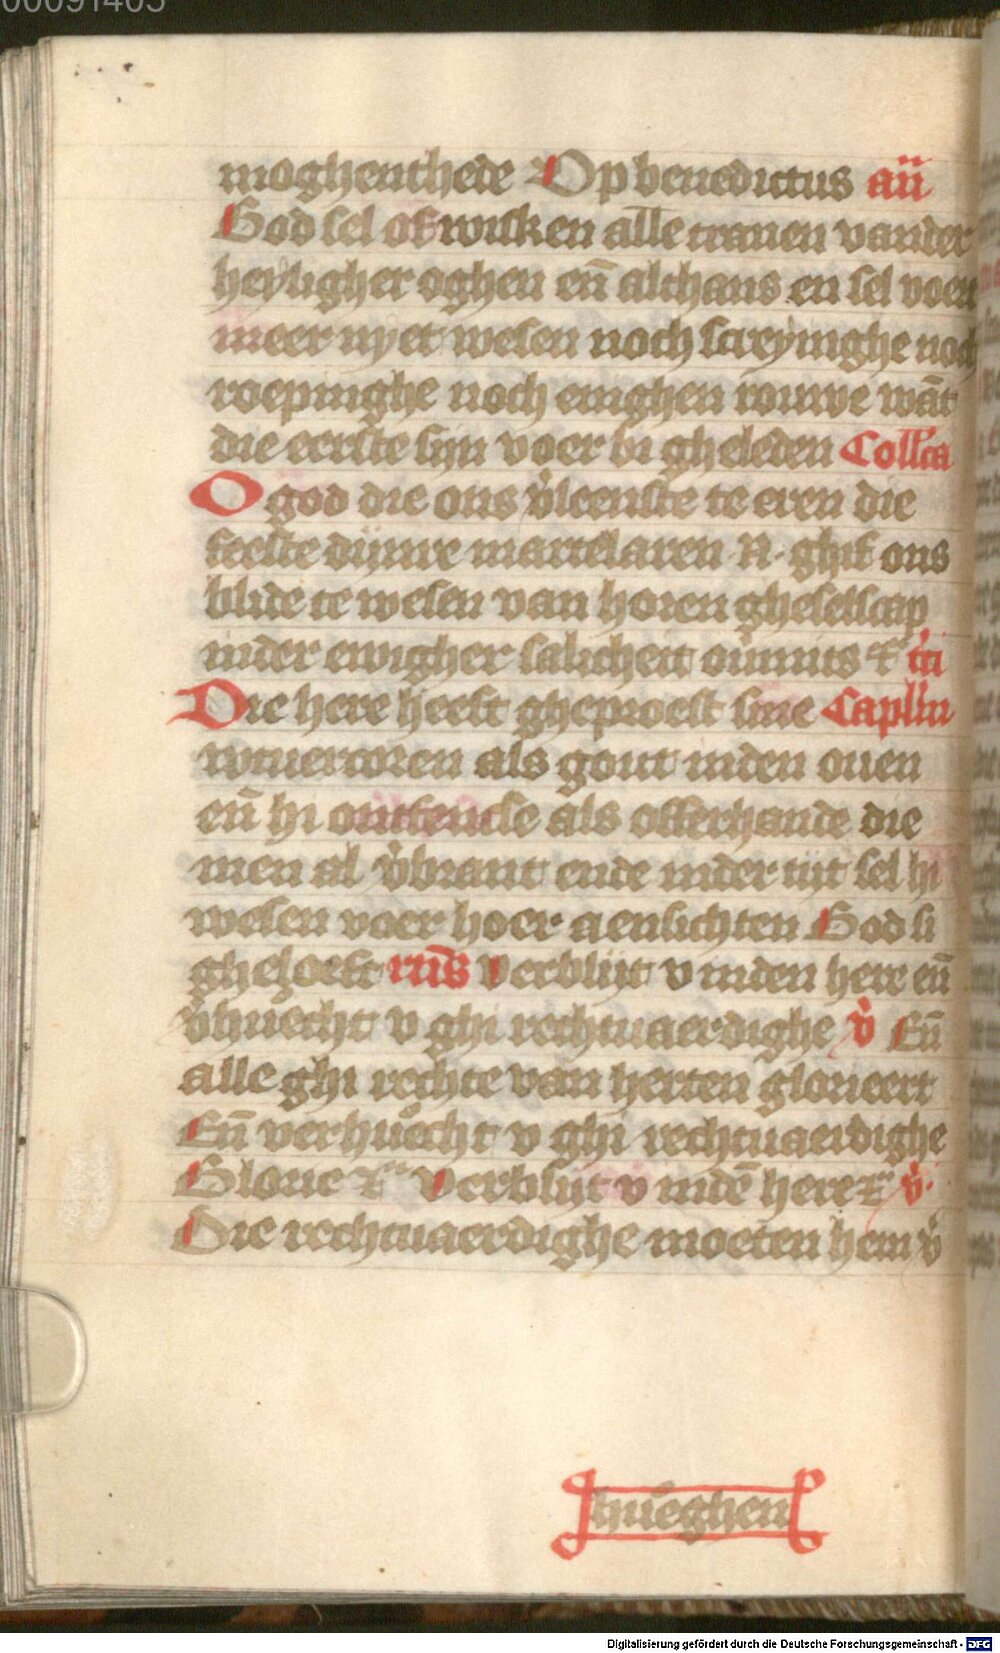 00091405
moghenthede Op benedictus an̄
God sel of wisken alle tranen vander
heyligher oghen en̄ althans en sel voert
meer nyet wesen noch screyinghe noch
roepinghe noch enighen rouwe wāt
die eerste sijn voer bi gheleden Coll'ca
O god die ons v̕leenste te eren die
feeste dijnre martelaren N. ghif ons
blide te wesen van horen gheselscap
inder ewigher salicheit ouermits &
Die here heeft gheproeft sine Capl'm
wtuercoren als gout inden ouen
en̄ hi ontfencse als offerhande die
men al v̕brant ende inder tijt sel hi
wesen voer hoer aensichten God si
gheloeft Verblijt v inden here en̄
v̕huecht v ghi rechtuaerdighe v̕ En̄
alle ghi rechte van herten glorieert
En̄ verhuecht v ghi rechtuaerdighe
Glorie & Verblijt v indē here & v̕
Die rechtuaerdighe moeten hem v̕
hueghen
Digitalisierung gefördert durch die Deutsche Forschungsgemeinschaft - DFG